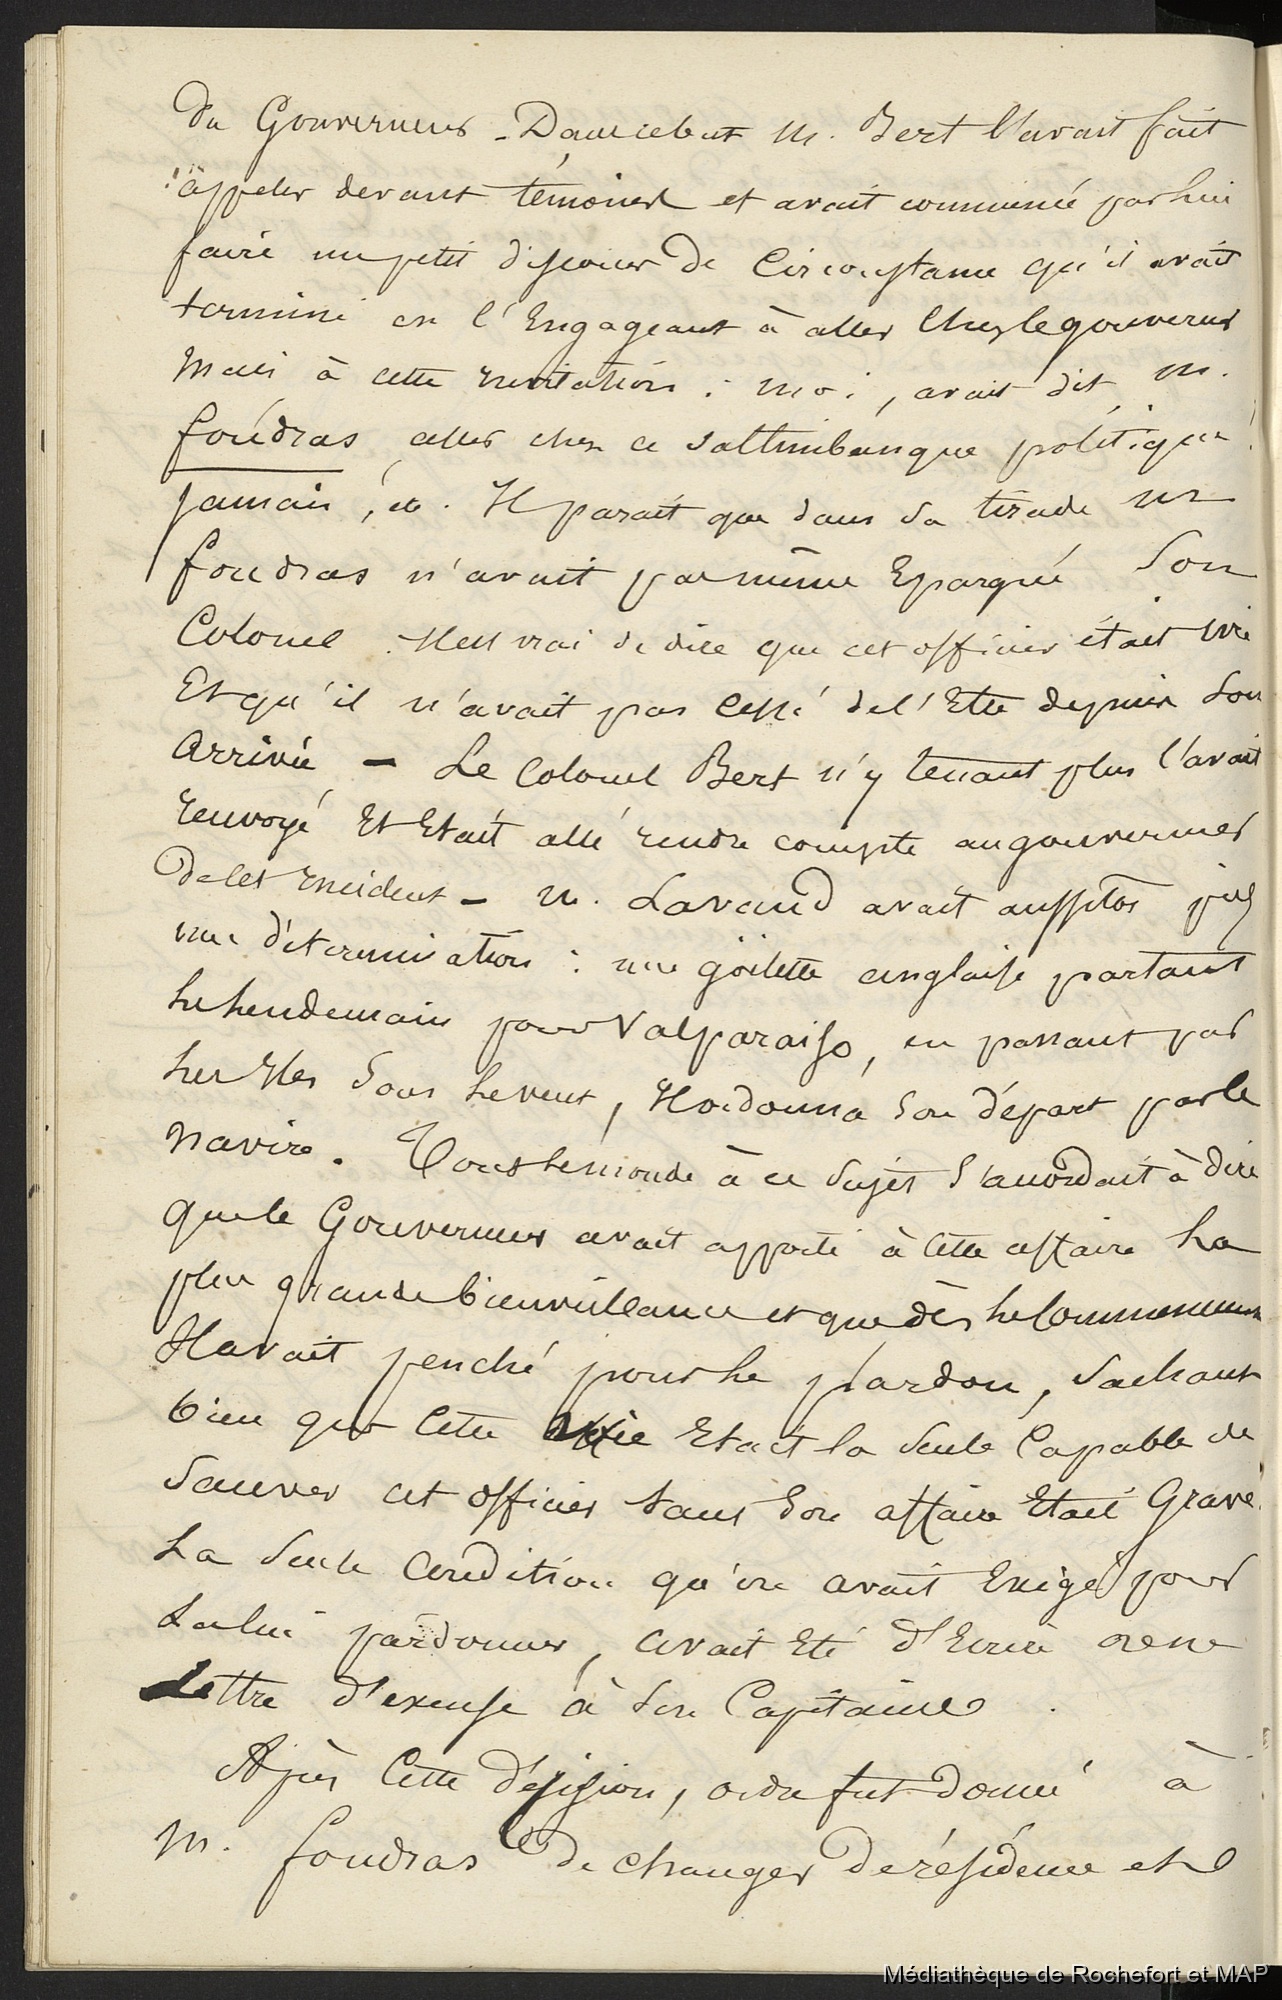 du Gouverneur - Dans ce but M. Bert l'avait fait
appeler devant témoins et avait commencé par lui
faire un petit discours de Circonstance qu'il avait
terminé en l'Engageant à aller Chez le gouverneur
Mais à cette invitation : moi, avait dit M.
foudras aller chez ce saltimbanque politique
Jamais, etc. Il parait que dans sa tirade Mr
foudras n'avait pas même Epargné Son
Colonel. Il est vrai de dire que cet officier était ivre
Et qu'il n'avait pas Cessé de l'Etre depuis Son
Arrivée - Le Colonel Bert n'y tenant plus l'avait
renvoyé Et Etait allé rendre compte au gouverneur
de Cet incident - M. Lavaud avait aussitôt pris
une détermination : une göelette anglaise partant
le lendemain pour Valparaiso, en passant par
les Iles Sous le vent, Il ordonna Son départ par le
Navire. Tout le monde à ce Sujet S'accordait à dire
que le Gouverneur avait apporté à Cette affaire la
plus grande bienveillance et que dès le Commencement
Il avait penché pour le pardon, Sachant
bien que Cette voie Etait la Seule Capable de
Sauver cet officier tant Son affaire Etait Grave.
La Seule Condition qu'on avait Exigé pour
La lui pardonner, avait Eté d'Ecrire une
Lettre d'excuse à Son Capitaine.
Après Cette désision, ordre fut donné à
M. foudras de changer de résidence et
Médiathèque de Rochefort et MAP